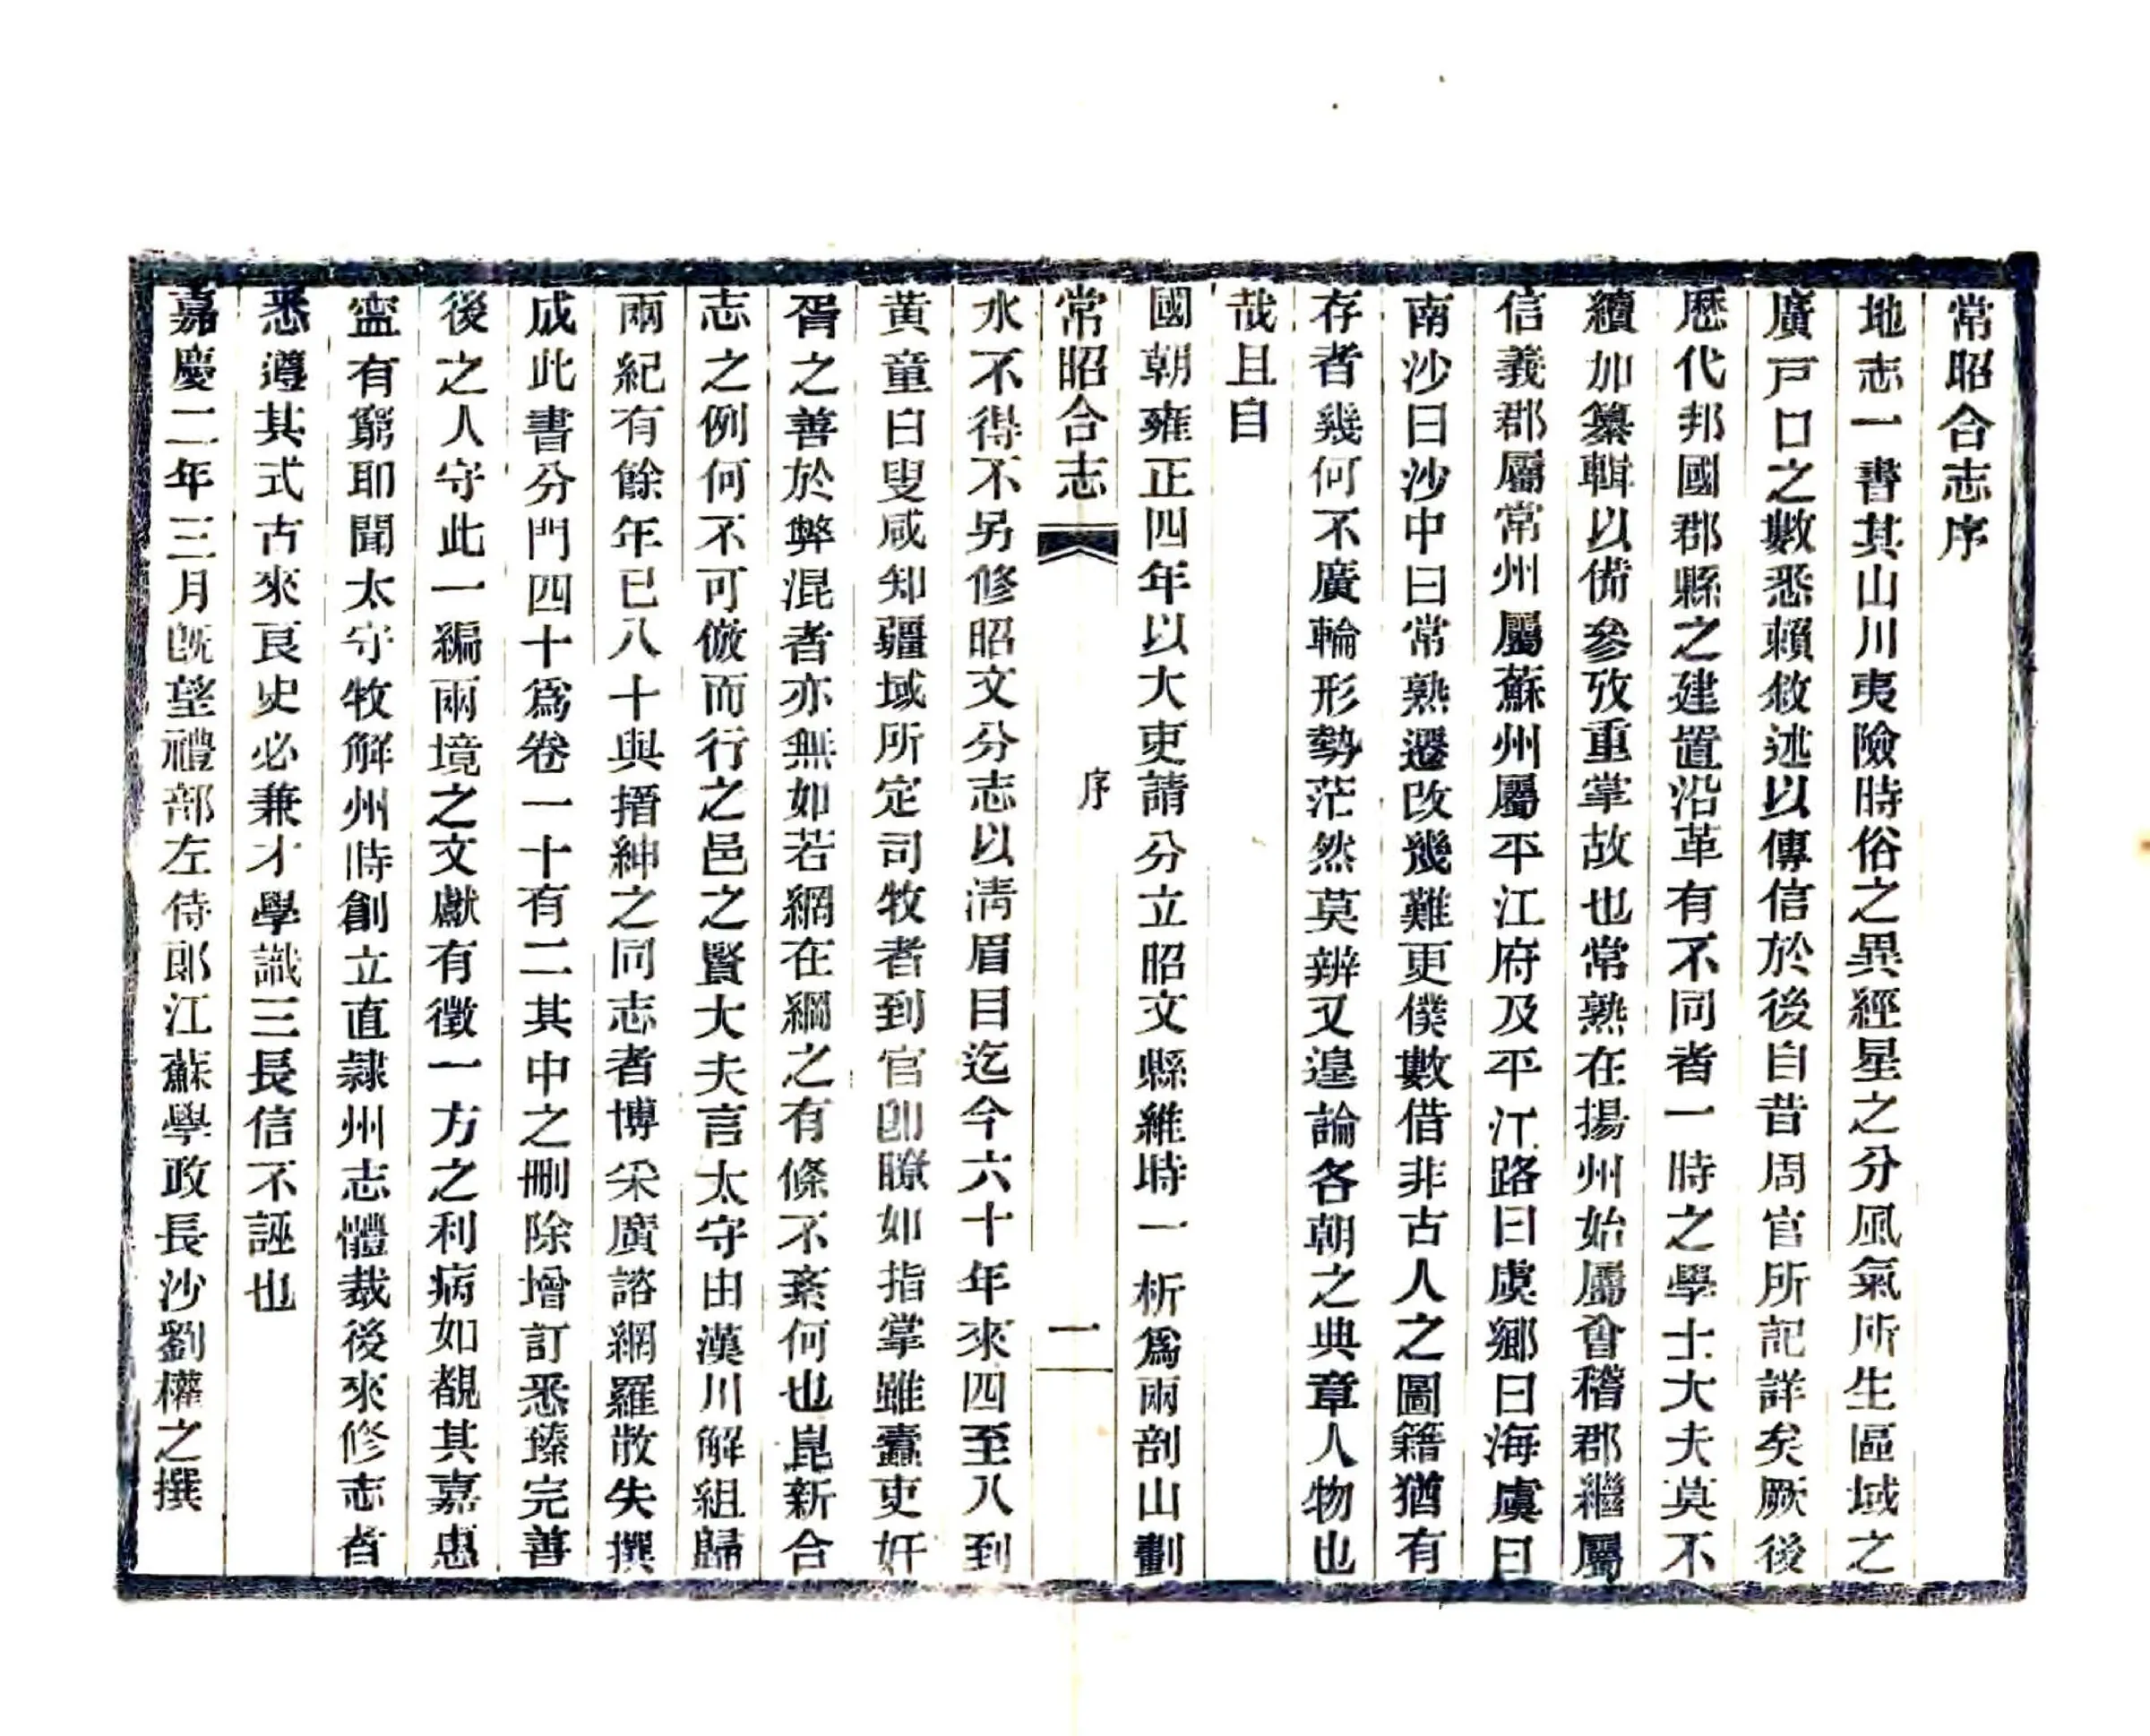 常昭合志序
地志一書其山川夷險時俗之異經星之分風氣所生區域之
廣戸口之數悉賴敘述以傳信於後自昔周官所記詳矣厥後
歷代邦國郡縣之建置沿革有不同者一時之學士大夫莫不
續加纂輯以備參攷重掌故也常熟在揚州始屬會稽郡繼屬
信義郡屬常州屬蘇州屬平江府及平江路曰虞鄉曰海虞曰
南沙曰沙中曰常熟遷改幾難更僕數借非古人之圖籍猶有
存者幾何不廣輪形勢茫然莫辨又遑論各朝之典章人物也
哉且自
國朝雍正四年以大吏請分立昭文縣維時一析爲兩剖山劃
常昭合志
序
一
水不得不另修昭文分志以清眉目迄今六十年來四至八到
黄童白叟咸知疆域所定司牧者到官卽瞭如指掌雖蠹吏奸
胥之善於弊混者亦無如若網在綱之有條不紊何也崑新合
志之例何不可倣而行之邑之賢大夫言太守由漢川解組歸
兩紀有餘年已八十與搢紳之同志者博采廣諮網羅散失撰
成此書分門四十爲卷一十有二其中之刪除增訂悉臻完善
後之人守此一編兩境之文獻有徵一方之利病如覩其嘉惠
寍有窮耶聞太守牧解州時創立直隸州志體裁後來修志者
悉遵其式古來良史必兼才學識三長信不誣也
嘉慶二年三月旣望禮部左侍郎江蘇學政長沙劉權之撰